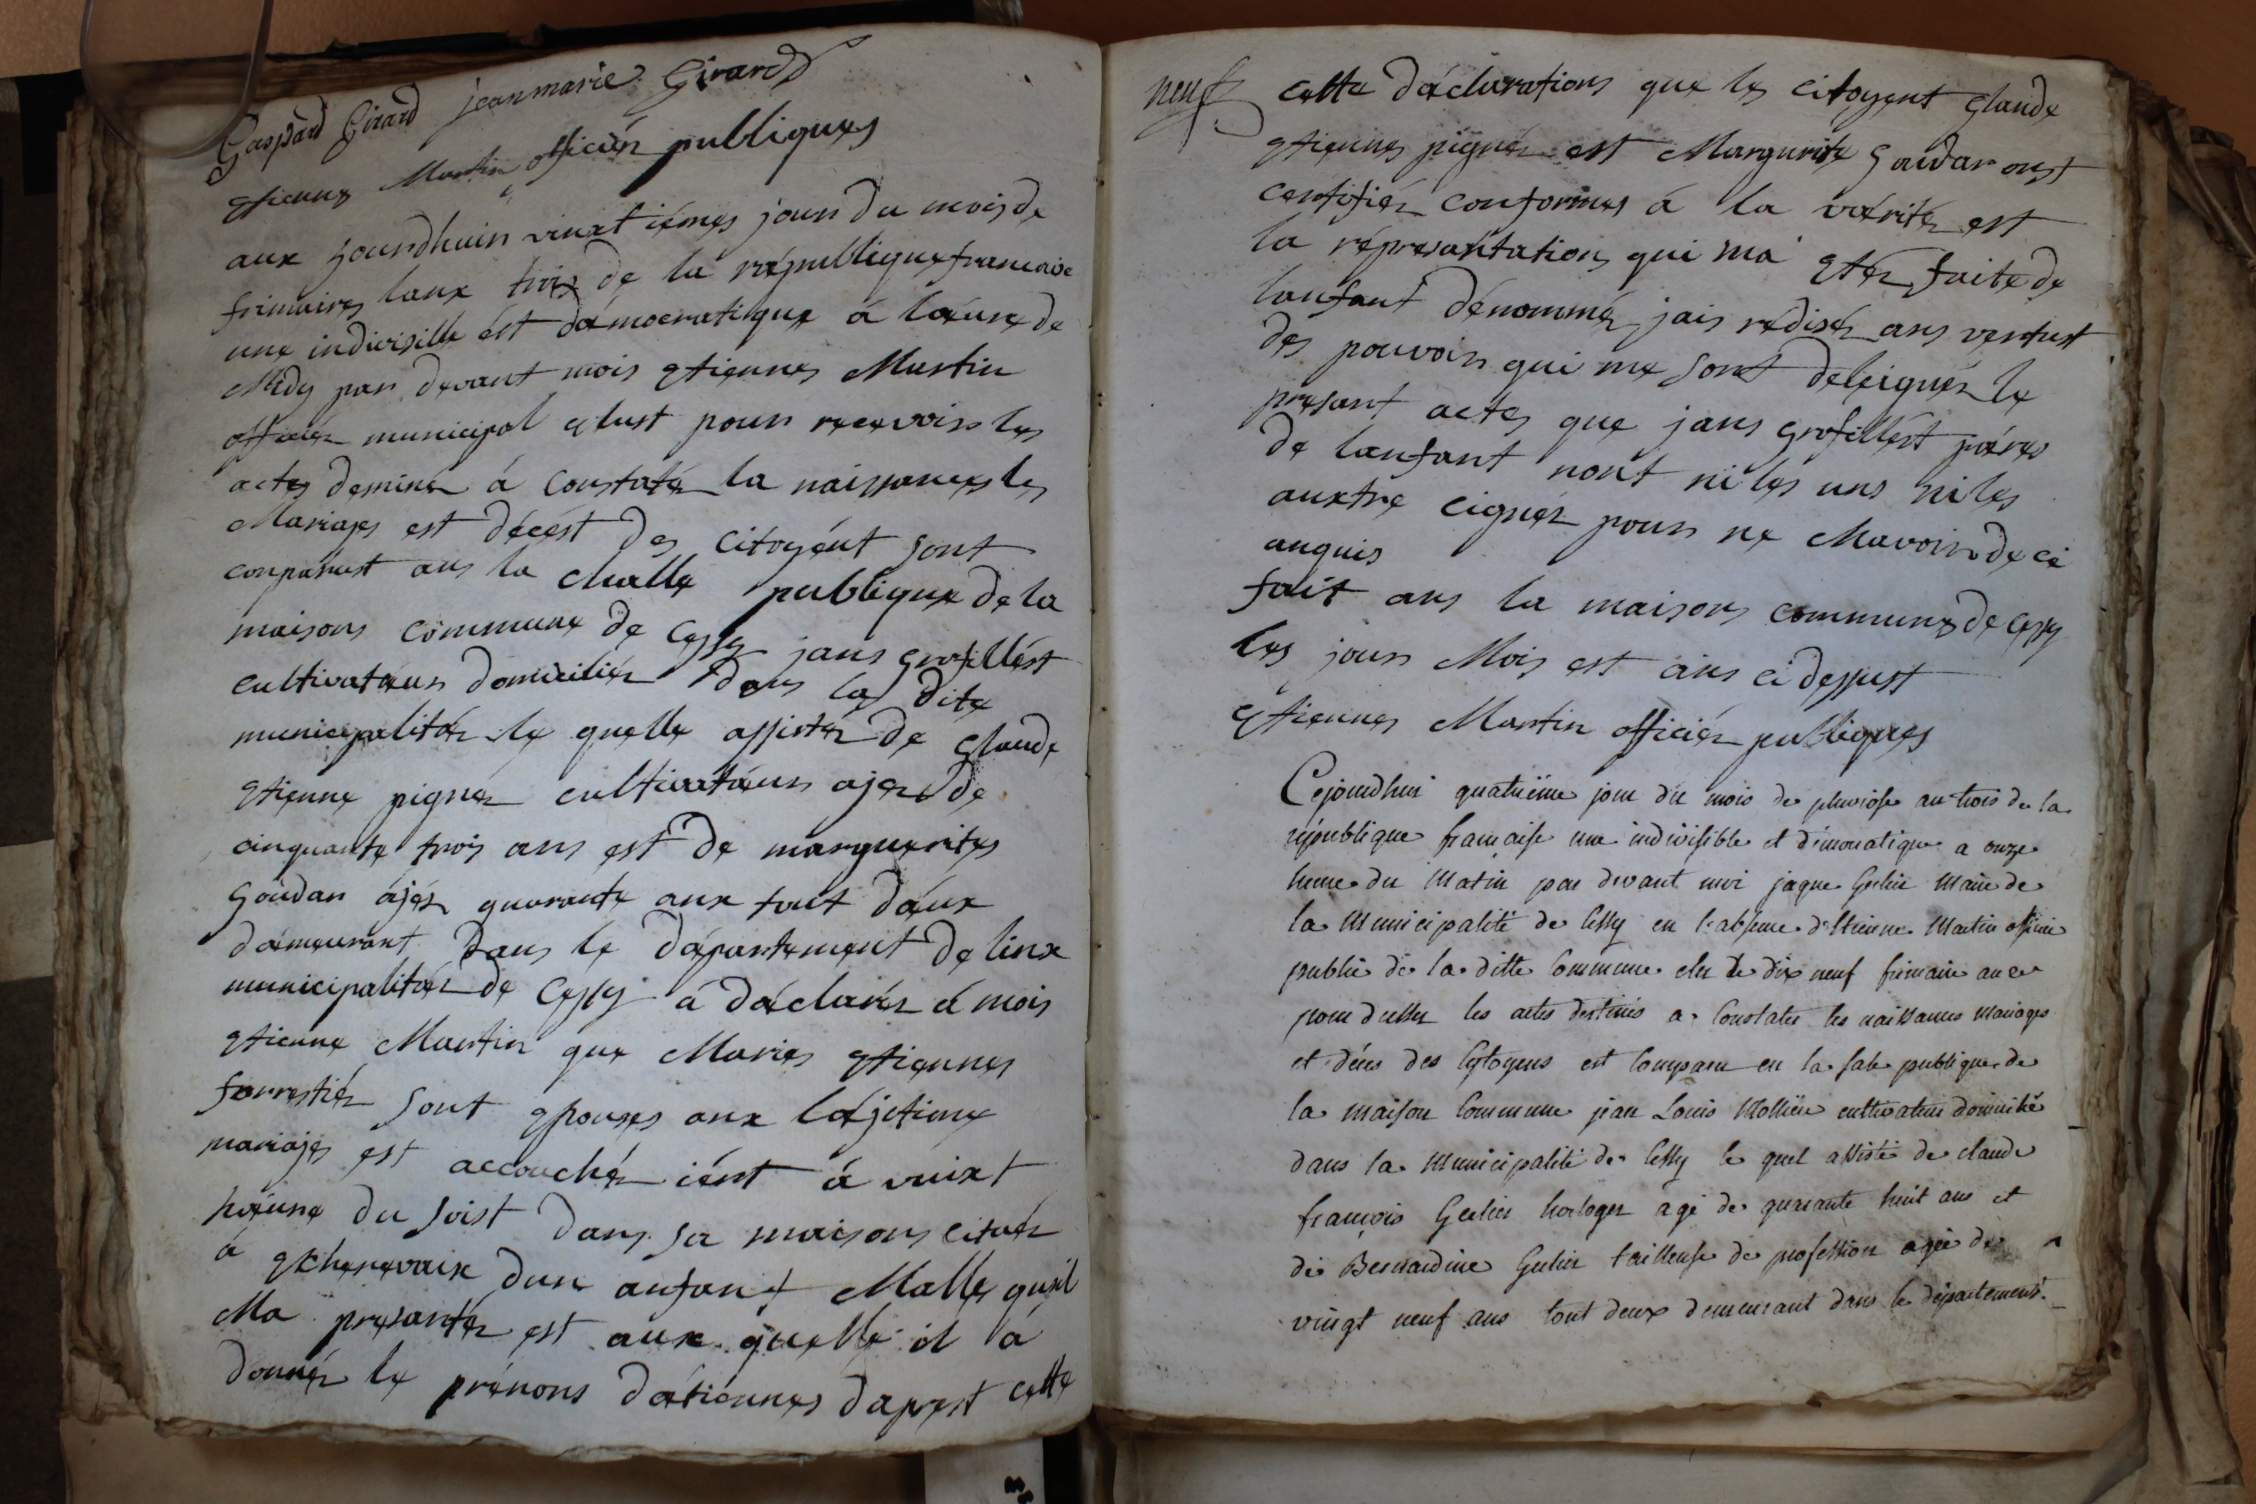 Gaspard Girard jean marie Girard
etienne Martin officiér publiques
aux jourdhuin vinxt iémes jour du mois de
frimaires lanx trois de la république francaise
une indivisille ést démocratique á laéure de
Midy par devant mois etiennes Martin
officiér municipal élust pour recevoir les
actes deminér á constatér la naissances les
Mariages est décést des citoyént sont
conparust ans la challe publique de la
maisons commune de Cessy jans grosfillést
cultivatéur domiciliér dans la dite
municipalitér le quelle assistér de glaude
etienne pignér cultivatéur ajer de
cinquante trois ans est de marguerites
goudar ájér quarante anx tout déux
démeurant dans le département de linx
municipalitér de Cessy á déclarér á mois
etienne Martin que Maries etiennes
forrestiér sont epouses anx léjetimx
mariajes est accouchér iérst á vuixt
héures du soist dans sa maisons cituér
á echenevaix dun anfant Malles quil
Ma présantér est aux quelle il á
donnér le prénons détiénnes daprest cette
neuf
cette déclarations que les citoyent glaude
etiennes pignér est Margurite goudar onst
certifiér conformes á la véritér est
la réprésantations qui má etér faite de
lanfant dénommér jais rédisér ans vertust
des pouvoir qui me sont deléiguér le
présant actes que jans grosfillést péres
de lanfant nont ni les uns ni les
auxtre cignér pour ne Mavoir de ce
anquis
fait ans la maisons communes de Cessy
les jours Mois est ans ci dessust
etiennes Martin officiér publiques
Cejourdhui quatriême jour du mois de pluviose an trois de la
république française une indivisible et démocratique a onze
heure du Matin par devant moi jaque Gerlier Maire de
la Municipalité de Cessy en l'absence d'Etienne Martin officier
public de la ditte Commune elu le dix neuf frimaire
pour dresser les actes destinés a Constater les naissances Mariages
et décès des Citoyens est Comparu en la sale publique de
la maison Commune jean Louis Mollier cultivateur domicilié
dans la Municipalité de Cessy le quel assisté de claude
françois Gerlier horloger agé de quarante huit ans et
de Bernardine Gerlier tailleuse de profession agée de
vingt neuf ans tout deux demeurant dans le département